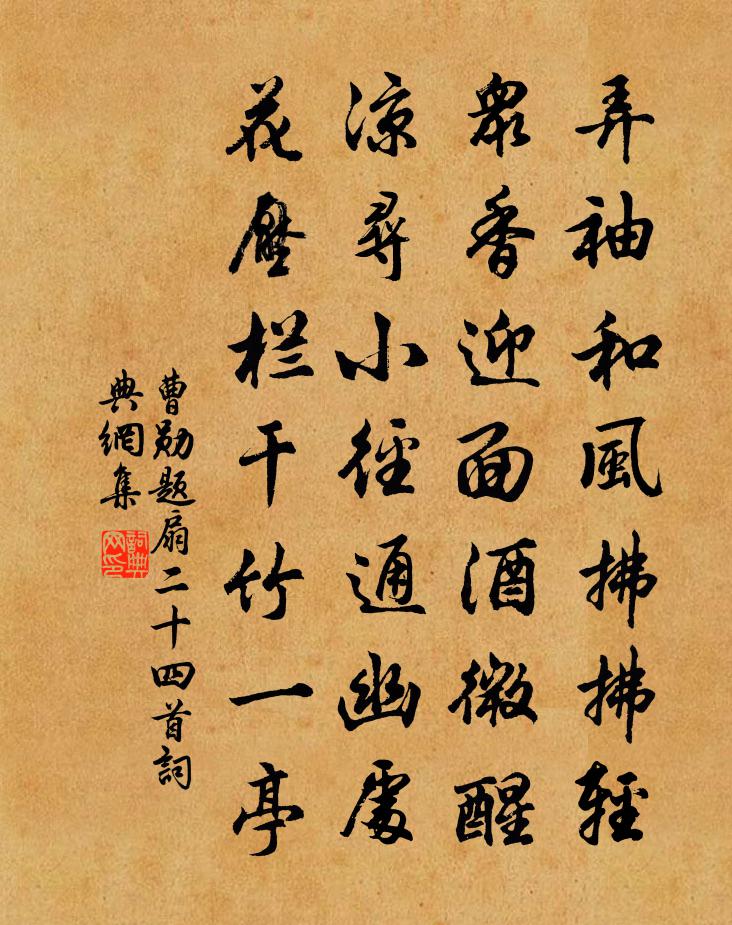 弄袖和風拂拂輕
衆香迎面酒微醒
涼尋小徑通幽處
花壓栏干竹一亭
曹勛題扇二十四首詞
典網集
詞典
网印